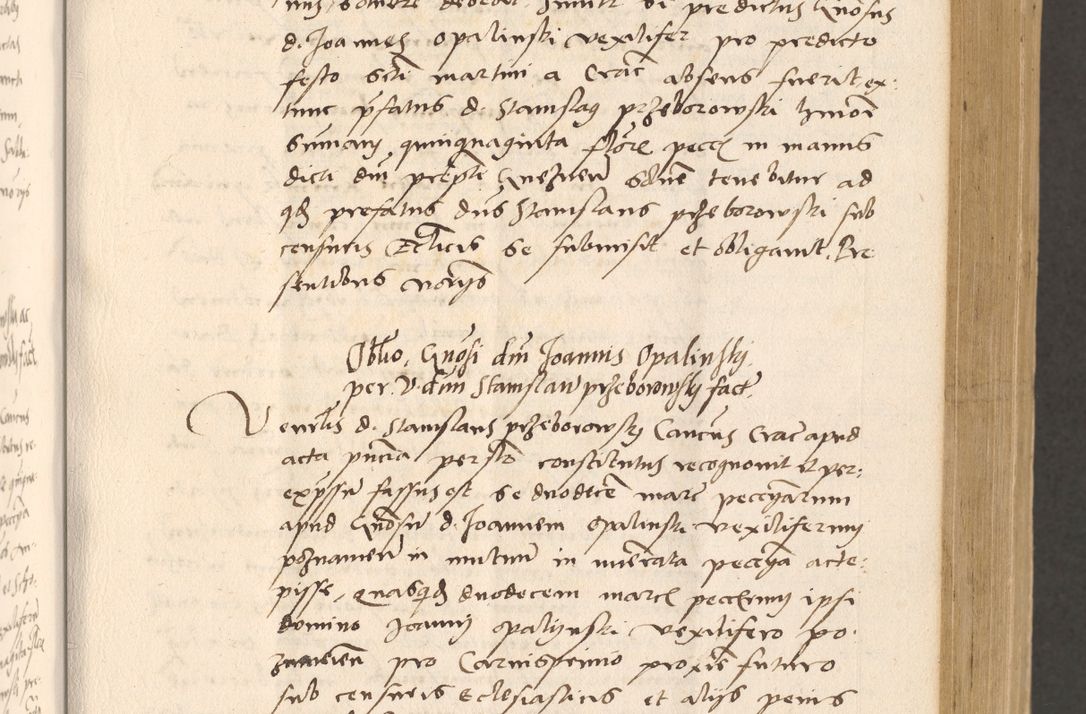 d. Joannes Opalinski vexilifer pro predicto
festo scti martini a Crac absens fuerit ex-
tunc pfatus d. Stanislaus przeborowski hmoi
Sumam quinquaginta flore pecc in manus
dicti dni prepti Gneznen solvere tenebitur ad
qd prefatus dns Stanislaus przeborowski sub
censuris Ecclicis se submisit et obligavit. Pre-
sentibus
Oblio. Gnosi dni Joannis Opalinskj
per V. dnm Stanislaum przeborowskj fact.
Venrlis d. Stanislaus przeborowskj Cancus Crac apud
acta pncia perstr constitutus recognovit et per
expssum fassus est se duodecem marc peccuarum
apud Gnosum d. Joannem Opalinski vexiliferum
poznanien in mutuum in numerata peccunia acce-
pisse, quasqd duodecem marc ipsi
domino Joanni Opalijnski vexilifero po-
znanien pro Carnisprivio proxie futuro
sub censuris Ecclesiasticis et alijs penis